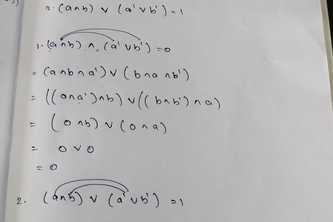 2. (a∧b) ∨ (a' ∨ b') = 1
1. (a∧b) ∧ (a' ∨ b') = 0
= (a∧b∧a') ∨ (b∧a∧b')
= ((a∧a')∧b) ∨ ((b∧b')∧a)
= (0∧b) ∨ (0∧a)
= 0 ∨ 0
= 0
2. (a∧b) ∨ (a' ∨ b') = 1